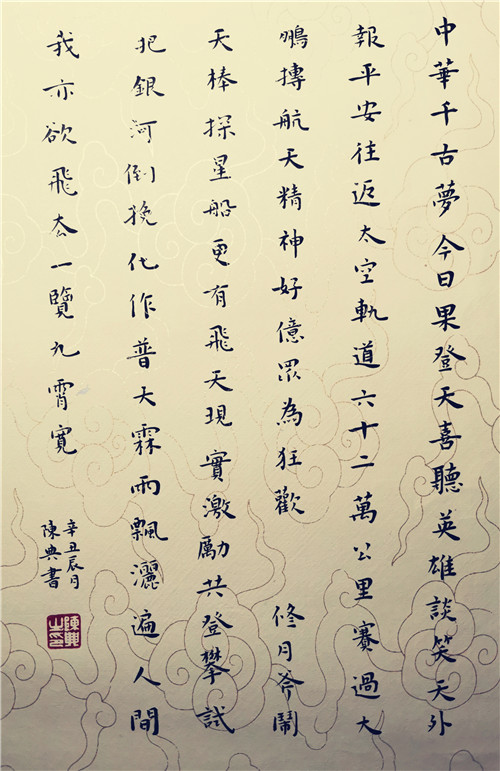 中華千古夢今日果登天喜聽英雄談笑天外
報平安往返太空軌道六十二萬公里賽過大
鵬摶航天精神好億眾為狂歡 修月斧鬧
天棒探星船更有飛天現實激勵共登攀試
把銀河倒挽化作普天霖雨飄灑遍人間
我亦欲飛去一覽九霄寬
辛丑辰月
陳典書
陳典之印